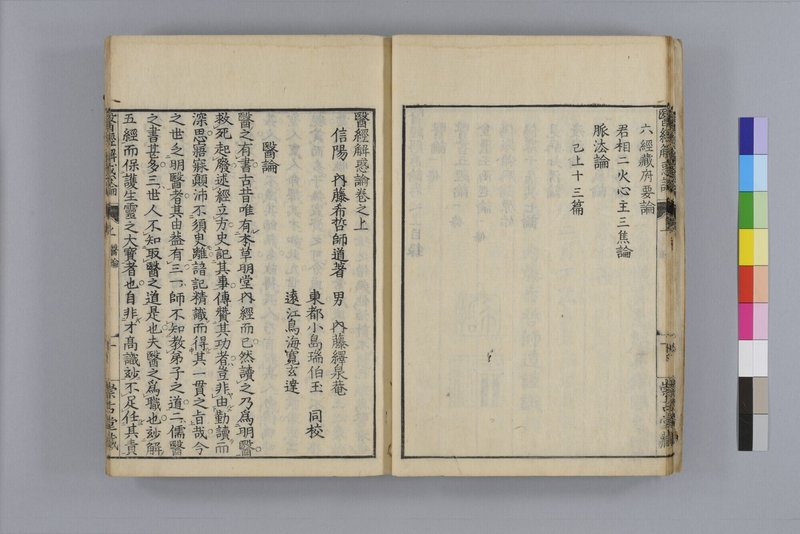 六經藏府要論
君相二火心主三焦論
脈法論
已上十三篇
醫經解惑論卷之上
信陽 內藤希哲師道著 男 內藤繹泉菴
東都小島瑞伯玉 同校
遠江鳥海寬玄達
醫論
醫之有書古昔唯有本草明堂內經而已然讀之乃爲明醫
救死起廢述經立方史記其事傳贊其功者豈非由勤讀而
深思寤寐顛沛不須臾離諳記積識而得其一貫之旨哉今
之世之明醫者其由葢有三一師不知敎弟子之道二儒醫
之書甚多三世人不知取醫之道是也夫醫之爲職也妙解
五經而保護生靈之大寶者也自非才高識妙不足任其責
醫經解惑論
醫論
一
崇古堂藏